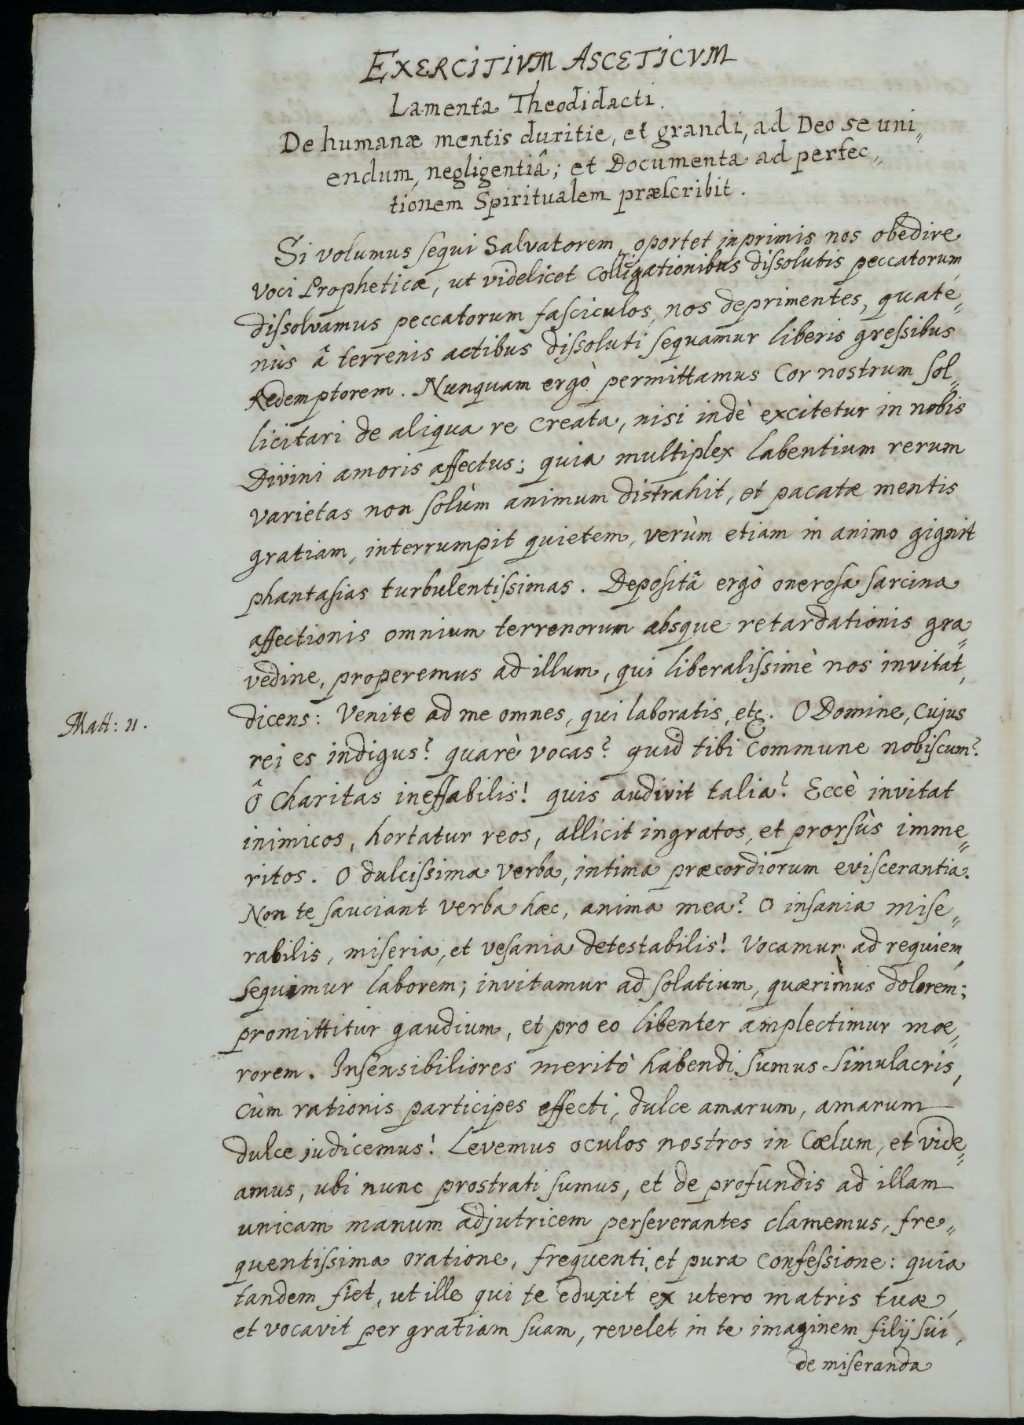 EXERCITIVM ASCETICVM
Lamenta Theodidacti.
De humanæ mentis duritie, et grandi, ad Deo se uni„
endum, negligentiâ; et Documenta ad perfec„
tionem Spiritualem præſcribit.
Si volumus ſequi Salvatorem, oportet inprimis nos obedire
voci Propheticæ, ut videlicet colligationibus diſſolutis peccatorum,
diſſolvamus peccatorum faſciculos, nos deprimentes, quate„
nùs â terrenis actibus diſſoluti ſequamur liberis greſſibus
Redemptorem. Nunquam ergò permittamus Cor nostrum ſol„
licitari de aliqua re creata, nisi indè excitetur in nobis
Divini amoris affectus; quia multiplex labentium rerum
varietas non ſolùm animum distrahit, et pacatæ mentis
gratiam, interrumpit quietem, verùm etiam in animo gignit
phantaſias turbulentiſſimas. Depoſitâ ergò oneroſa sarcina
affectionis omnium terrenorum absque retardationis gra„
vedine, properemus ad illum, qui liberaliſſimè nos invitat,
Matt: 11.
dicens: Venite ad me omnes, qui laboratis, etc. O Domine, cujus
rei es indigus? quarè vocas? quid tibi commune nobiſcum?
Ô Charitas ineffabilis! quis audivit talia? Eccè invitat
inimicos, hortatur reos, allicit ingratos, et prorſùs imme„
ritos. O dulciſſima verba, intima præcordiorum eviſcerantia.
Non te ſauciant verba hæc, anima mea? O inſania miſe„
rabilis, miſeria, et veſania detestabilis! Vocamur ad requiem,
ſequimur laborem; invitamur ad ſolatium, quærimus dolorem;
promittitur gaudium, et pro eo libenter amplectimur mœ„
rorem. Inſenſibiliores meritò habendi ſumus ſimulacris,
cùm rationis participes effecti, dulce amarum, amarum
dulce judicemus! Levemus oculos nostros in Cœlum, et vide„
amus, ubi nunc prostrati ſumus, et de profundis ad illam
unicam manum adjutricem perſeverantes clamemus, fre„
quentiſſima oratione, frequenti, et pura confeſſione: quia
tandem fiet, ut ille qui te eduxit ex utero matris tuæ,
et vocavit per gratiam ſuam, revelet in te imaginem filij ſui,
de miſeranda